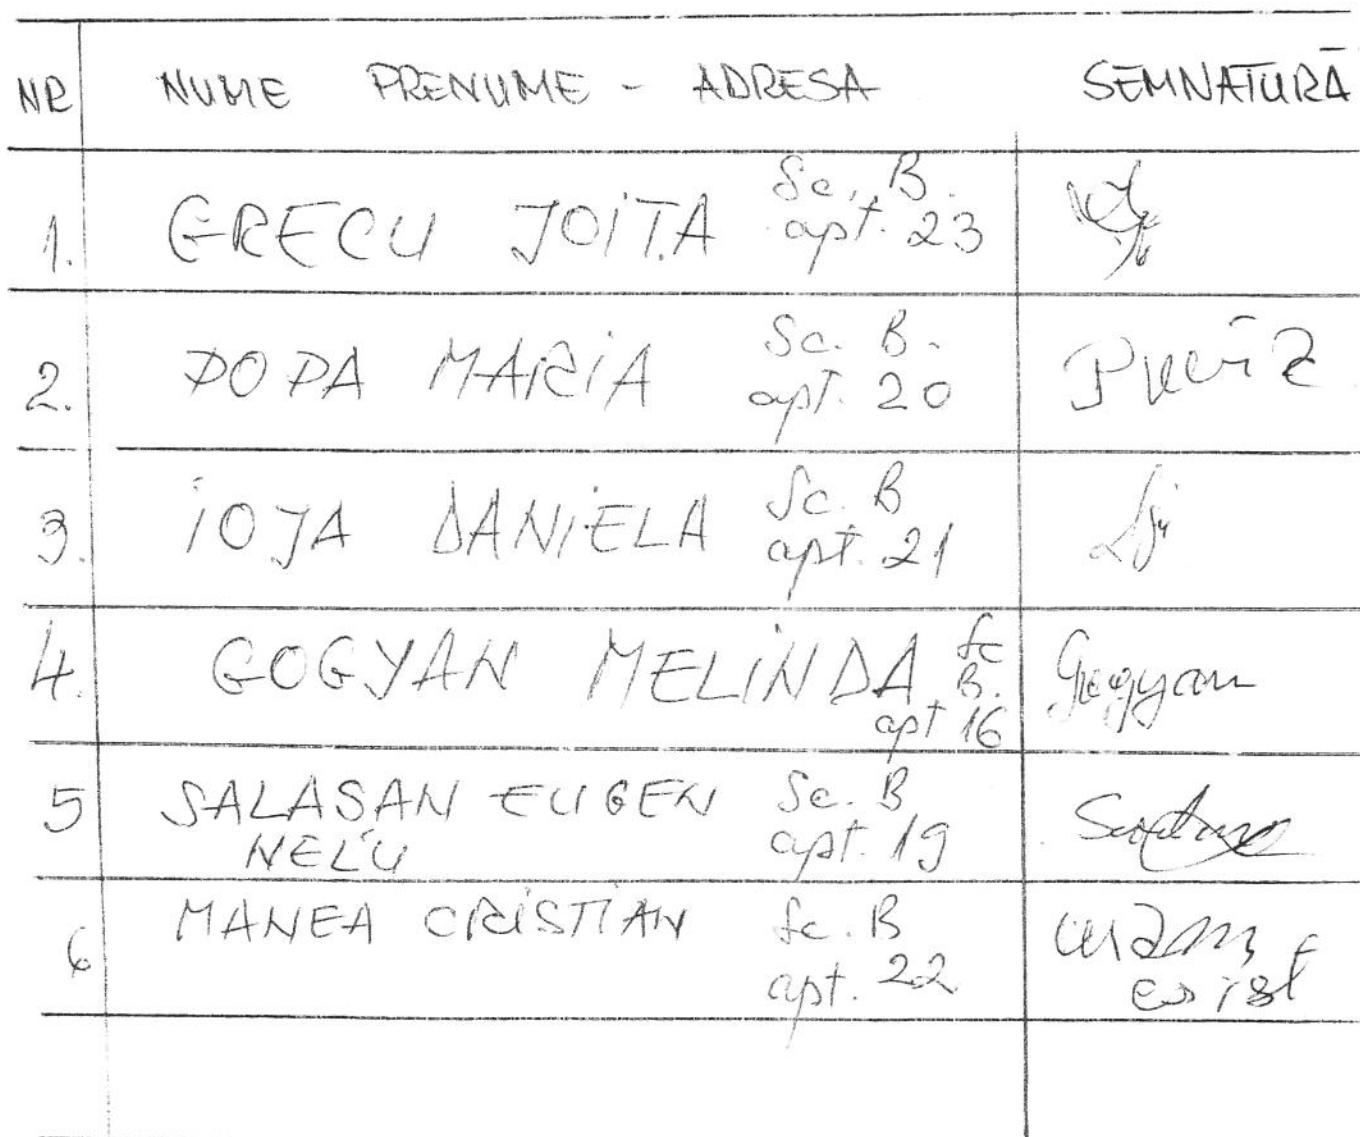 NR NUME PRENUME - ADRESA SEMNATURĂ
1. GRECU JOIȚA Sc. B.
apt. 23
2. POPA MARIA Sc. B.
apt. 20
3. IOJA DANIELA Sc. B
apt. 21
4. GOGYAN MELINDA Sc
B.
apt 16 Gogyan
5 SALASAN EUGEN Sc. B
NELU apt. 19
6 MANEA CRISTIAN Sc. B
apt. 22